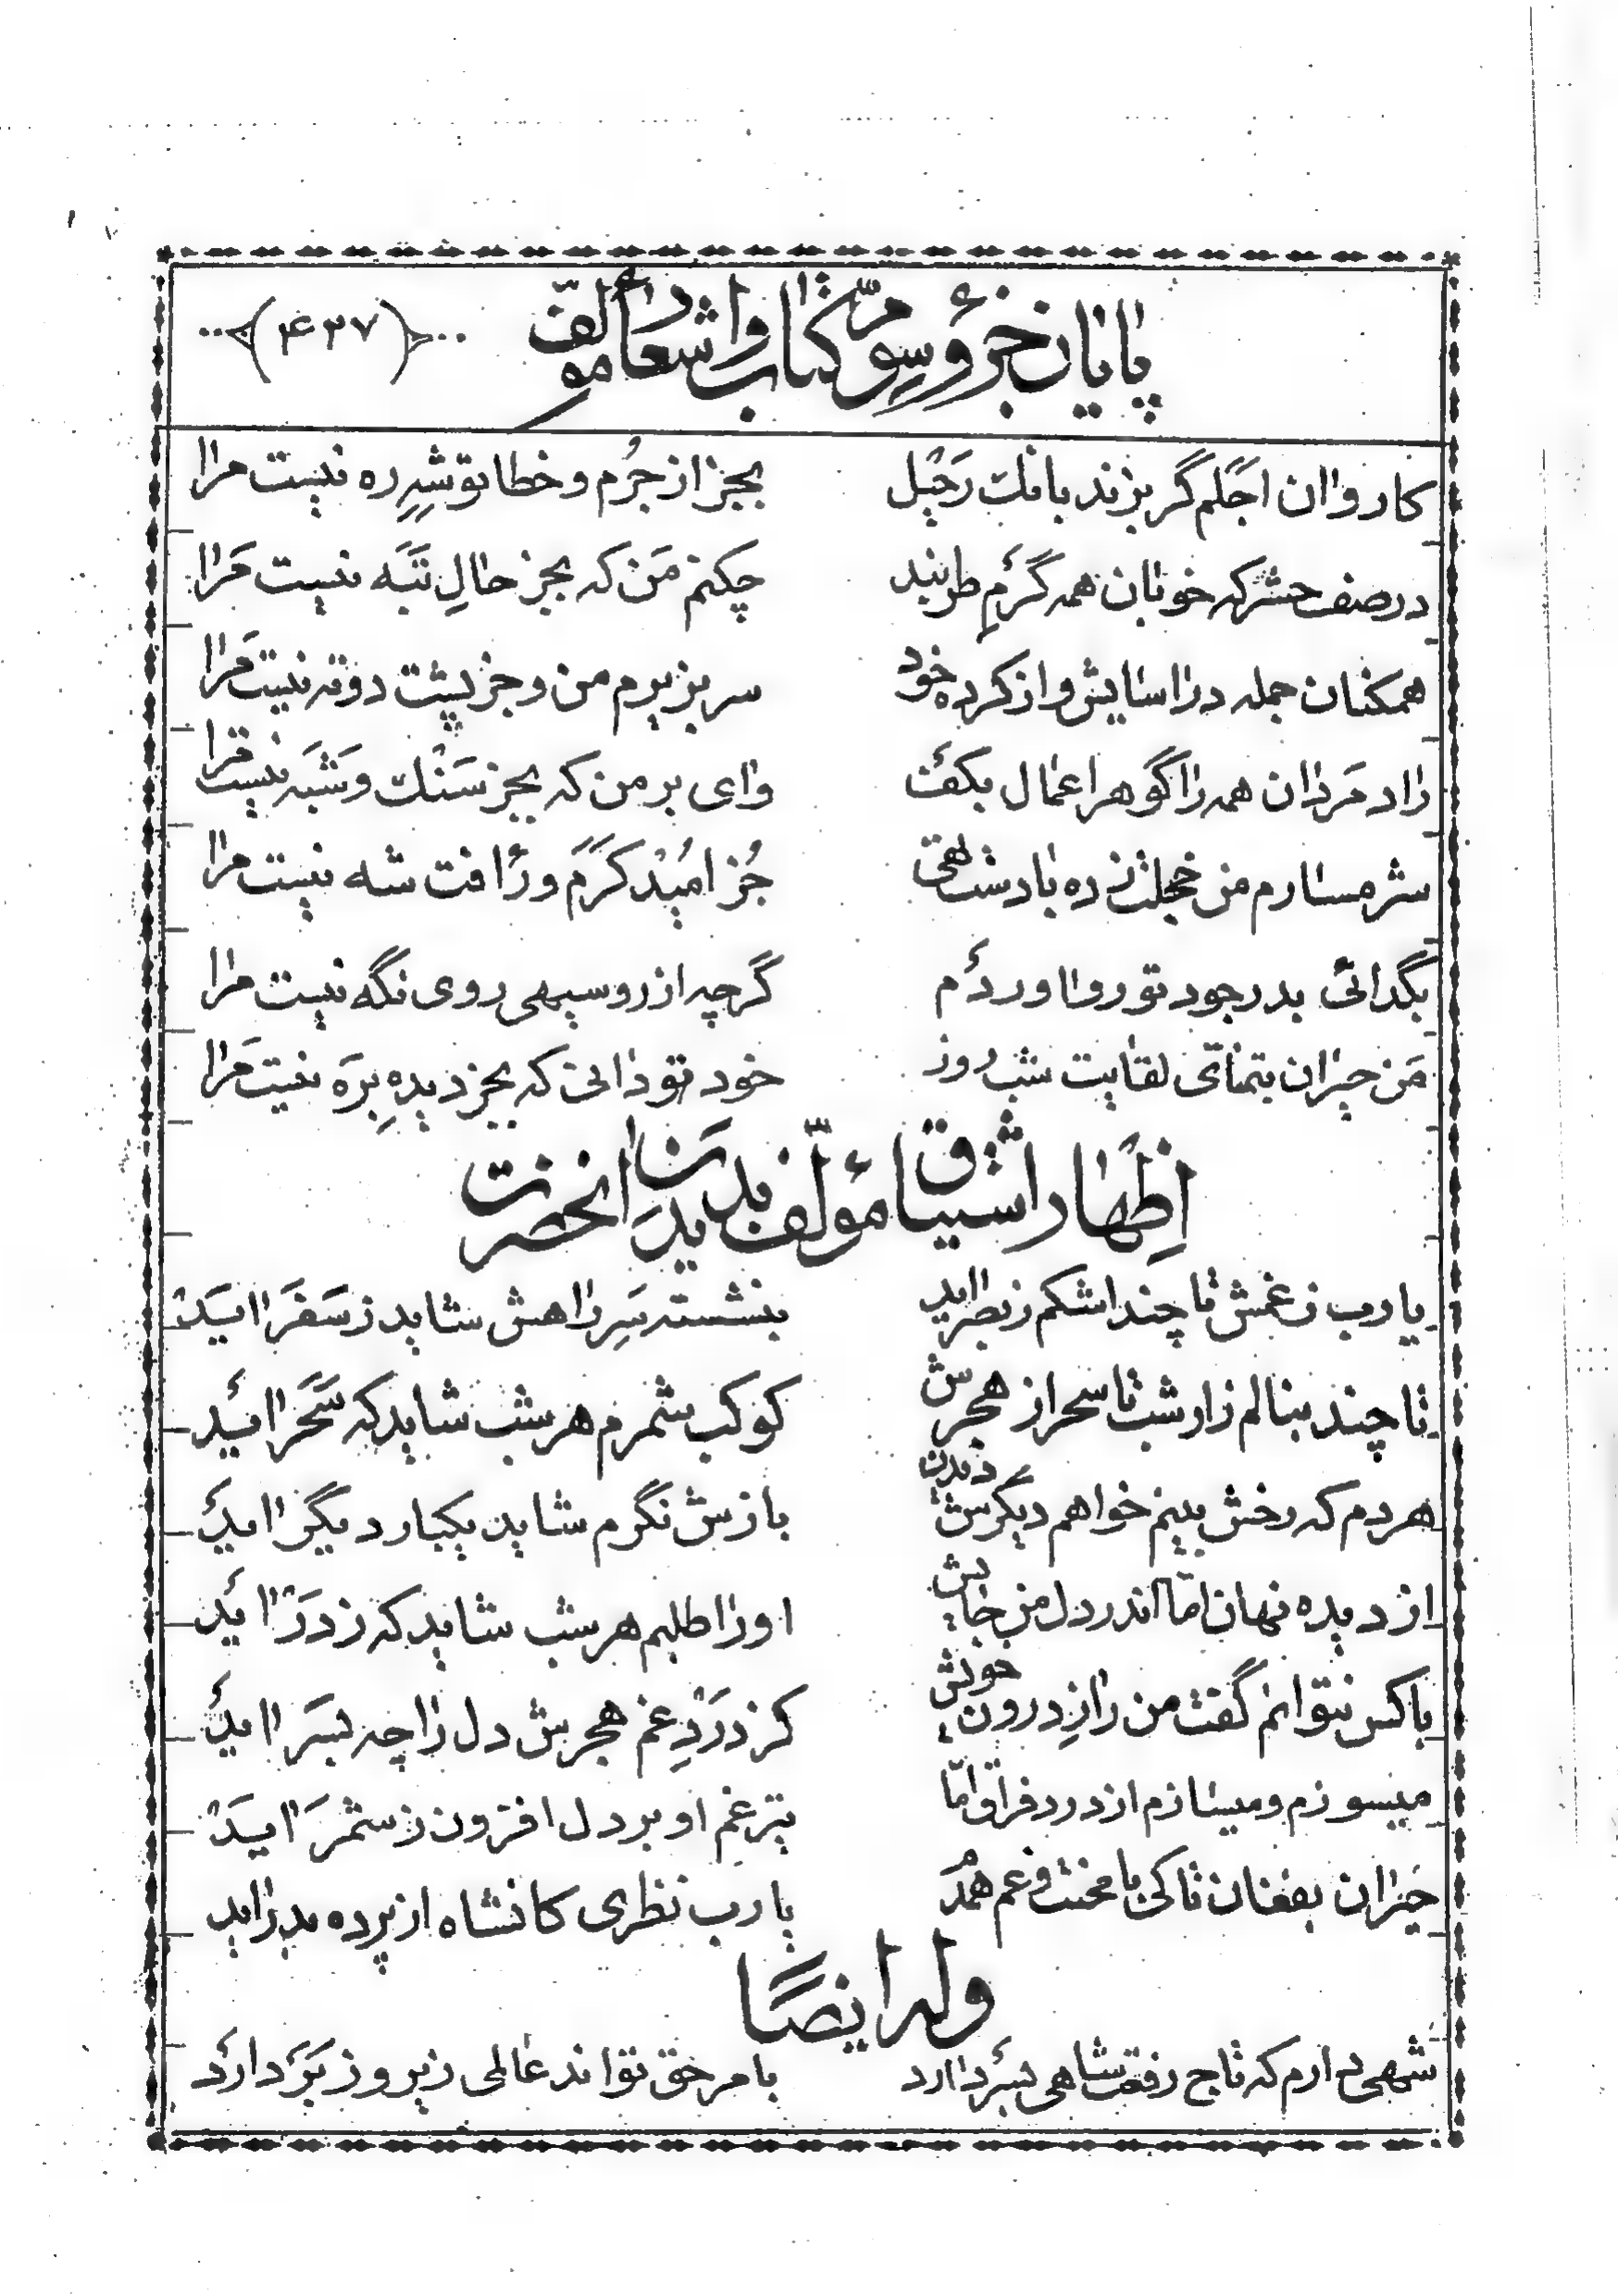 پایان جزؤ سوم کتاب و اشعار مؤلف ﴿۴۳۷﴾
کاروان اجلم گر بزند بانک رحیل بجز از جُرم و خطا توشهٔ ره نیست مرا
در صف حشر که خوبان همه گرم طربند چکنم من که بجز حالِ تبه نیست مرا
همکنان جمله در اسایش و از کرده خود سر بزیرم من و جز پشت دوته نیست مرا
راد مردان همه را گوهر اعمال بکف وای بر من که بجز سنک و شبه نیست مرا
شرمسارم من خجلت زده با دست تهی جُز امید کرم و رأفت شه نیست مرا
بگدائی بدر جود تو رو اوردم گرچه از روسیهی روی نگه نیست مرا
من حیران بتمنای لقایت شب روز خود تو دانی که بجز دیده بره نیست مرا
اِظهار اشتیاق مؤلف بدیدن انحضرت
یارب ز غمش تا چند اشکم ز بصر اید بنشسته سرِ راهش شاید ز سفر اید
تا چند بنالم زار شب تا سحر از هجرش کوکب شمرم هر شب شاید که سحر اید
هر دم که رخش بینم خواهم دیگرش دیدن بازش نگرم شاید یکبار دیگر اید
از دیده نهان اما اندر دل من جایش او را طلبم هر شب شاید که ز در اید
با کس نتوانم گفت من رازِ درون خویش کز دردِ غم هجرش دل را چه بسر اید
میسوزم و میسازم از درد فراق اما تیر غم او بر دل افزون ز شمر اید
حیران بفغان تا کی با محنت و غم همدم یارب نظری کانشاه از پرده بدر اید
وله ایضًا
شهی دارم که تاج رفعت شاهی بسر دارد بامر حق تواند عالمی زیر و زبر دارد